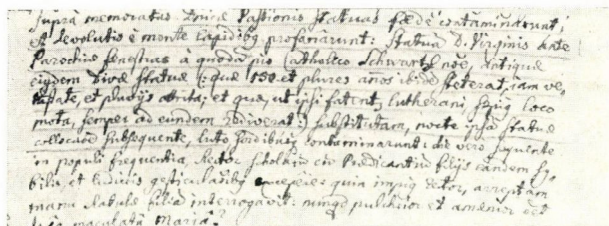 supra memoratas Dnicæ Passionis statuas fœdè contaminârunt;
Et devolutis è monte lapidibq profanârunt: Statuâ D. Virginis ante
Parochiæ fenestras à quodâ pio Catholico Schwartz noe, antiquæ
eiusdem Divæ Statuæ (: quæ 150 et plures anos ibidē steterat, iam ve,
et pluvijs attrita; et quæ, ut ipsi fatent, lutherani, loco
mota, semper ad eundem redìverat :) substitutam, nocte ipsâ statuæ
collocaoē subsequente, luto sordibusq contaminârunt: die vero sequente
in populi frequentia, Rector Scholæ cū Prædicantiū filijs eandem
bilia, et ludicris gesticulaōibq: quin impiq Rector, arreptam
manu filiâ interrogavit: nunqd pulchrior et amænior est
maculatâ Mariâ?